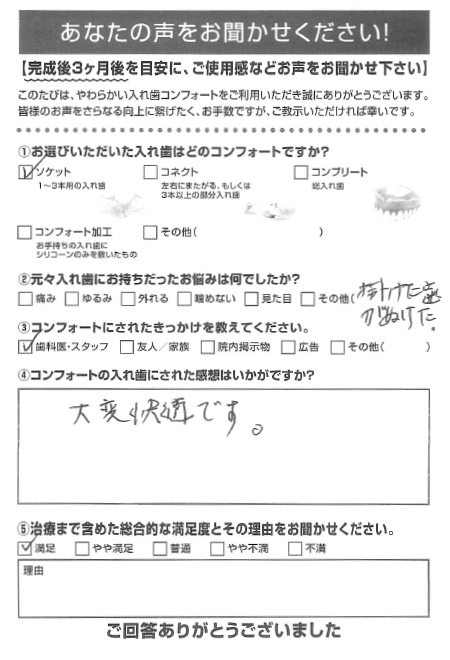 あなたの声をお聞かせください!
【完成後3ヶ月後を目安に、ご使用感などお声をお聞かせ下さい】
このたびは、やわらかい入れ歯コンフォートをご利用いただき誠にありがとうございます。
皆様のお声をさらなる向上に繋げたく、お手数ですが、ご教示いただければ幸いです。
①お選びいただいた入れ歯はどのコンフォートですか?
☑ソケット □コネクト □コンプリート
1〜3本用の入れ歯 左右にまたがる、もしくは 総入れ歯
3本以上の部分入れ歯
□コンフォート加工 □その他( )
お手持ちの入れ歯に
シリコーンのみを敷いたもの
②元々入れ歯にお持ちだったお悩みは何でしたか?
□痛み □ゆるみ □外れる □噛めない □見た目 □その他(掛けた歯
がぬけた。
③コンフォートにされたきっかけを教えてください。
☑歯科医・スタッフ □友人/家族 □院内掲示物 □広告 □その他( )
④コンフォートの入れ歯にされた感想はいかがですか?
大変快適です。
⑤治療まで含めた総合的な満足度とその理由をお聞かせください。
☑満足 □やや満足 □普通 □やや不満 □不満
理由
ご回答ありがとうございました